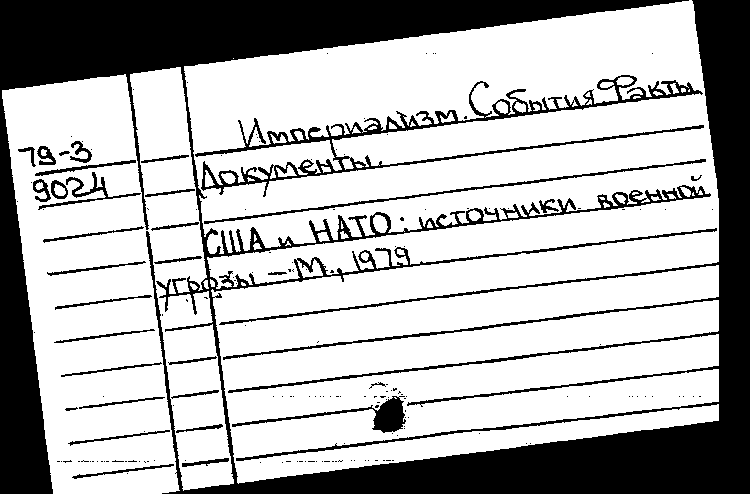 Империализм. События. Факты.
79-3
9024
Документы.
США и НАТО: источники военной
угрозы - М., 1979.